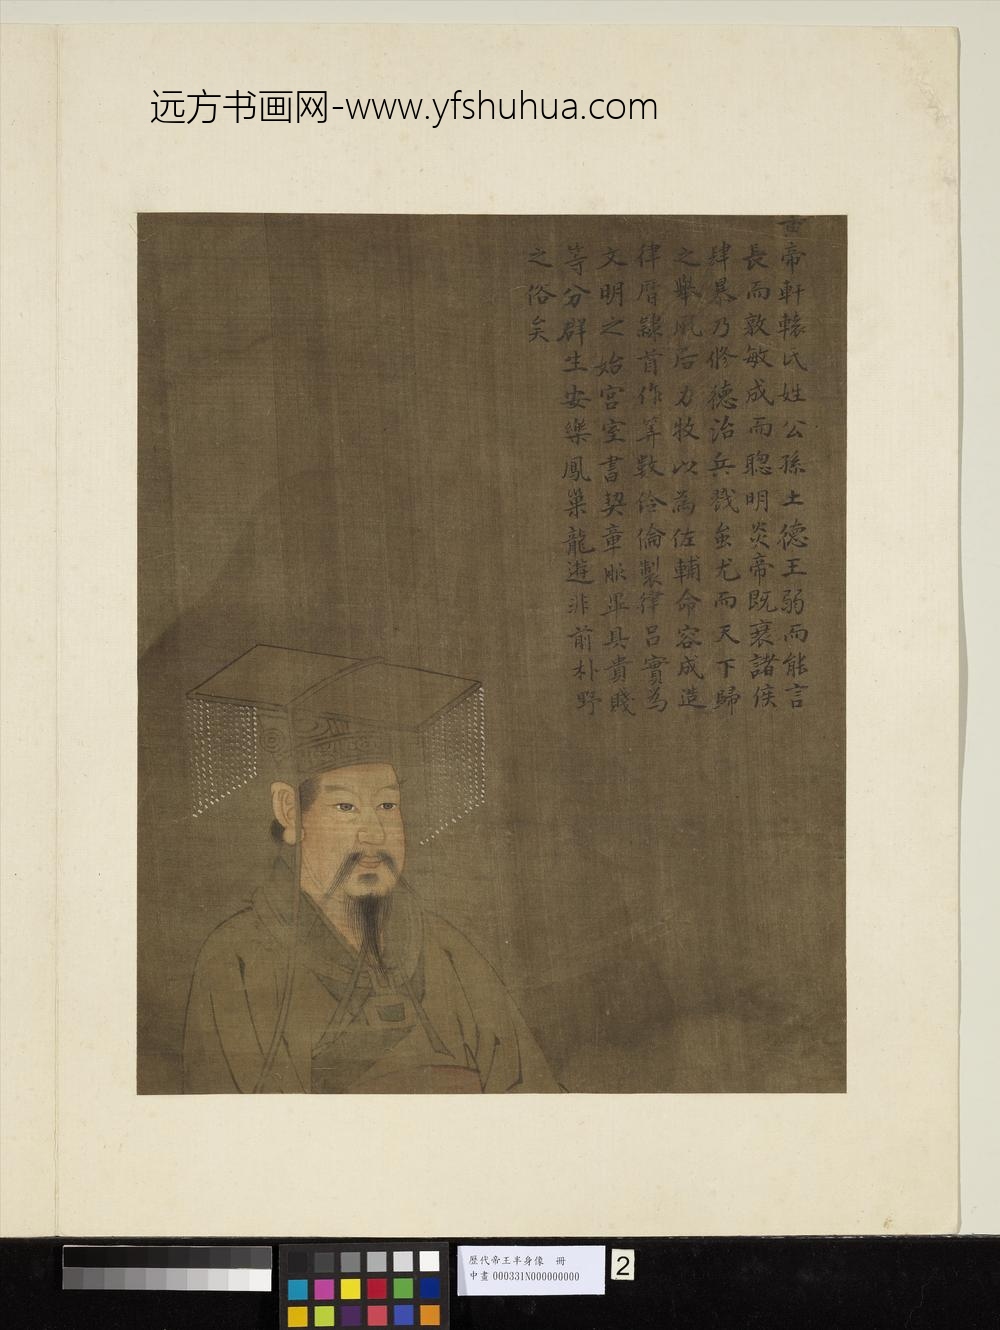 远方书画网-www.yfshuhua.com
黄帝軒轅氏姓公孫土德王弱而能言
長而敦敏成而聰明炎帝既衰諸侯
肆暴乃修德治兵戮蚩尤而天下歸
之舉風后力牧以為佐輔命容成造
律曆隸首作筭數伶倫製律呂實為
文明之始宮室書契章服畢具貴賤
等分群生安樂鳳巢龍遊非前朴野
之俗矣
歷代帝王半身像 冊
中畫 000331N000000000
2